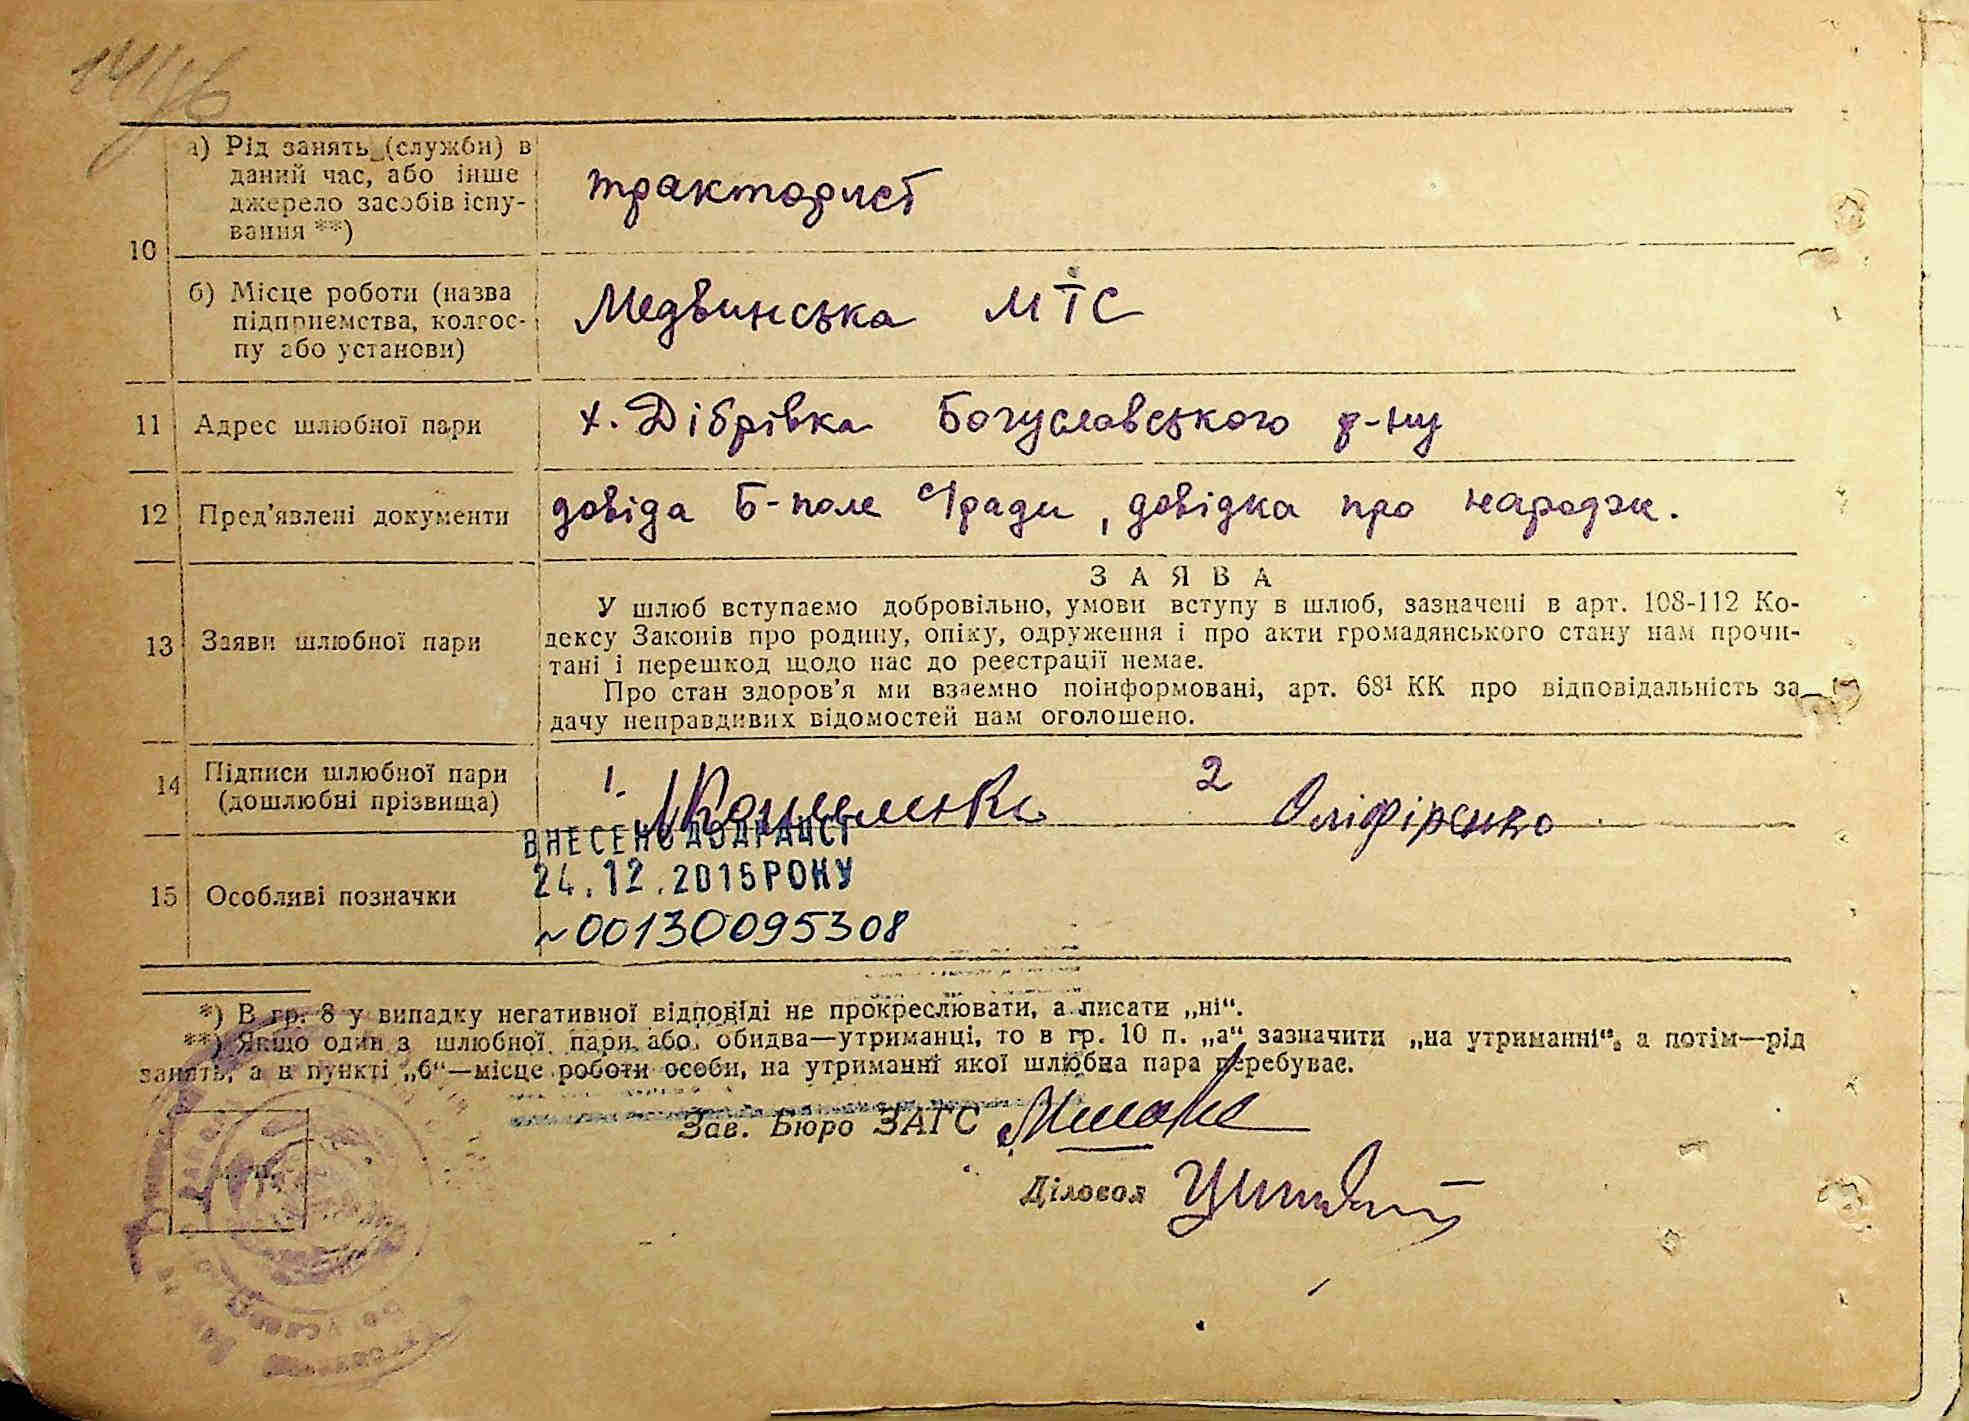 а) Рід занять (служби) в
даний час, або інше
джерело засобів існу-
вання **)
тракторист
10
б) Місце роботи (назва
підприємства, колгос-
пу або установи)
Медвинська МТС
11 Адрес шлюбної пари
х. Дібрівка Богуславського р-ну
12 Пред’явлені документи
довіда Б-поле с/ради, довідка про народж.
13 Заяви шлюбної пари
ЗАЯВА
У шлюб вступаємо добровільно, умови вступу в шлюб, зазначені в арт. 108-112 Ко-
дексу Законів про родину, опіку, одруження і про акти громадянського стану нам прочи-
тані і перешкод щодо нас до реєстрації немає.
Про стан здоров’я ми взаємно поінформовані, арт. 68¹ КК про відповідальність за
дачу неправдивих відомостей нам оголошено.
14 Підписи шлюбної пари
(дошлюбні прізвища)
1. 2 Оліфіренко
ВНЕСЕНО ДО ДРАЦСГ
24.12.2015 РОКУ
15 Особливі позначки
~00130095308
*) В гр. 8 у випадку негативної відповіді не прокреслювати, а писати „ні“.
**) Якщо один з шлюбної пари або обидва—утриманці, то в гр. 10 п. „а“ зазначити „на утриманні“, а потім—рід
занять, а в пункті „б“—місце роботи особи, на утриманні якої шлюбна пара перебуває.
Зав. Бюро ЗАГС
Діловод